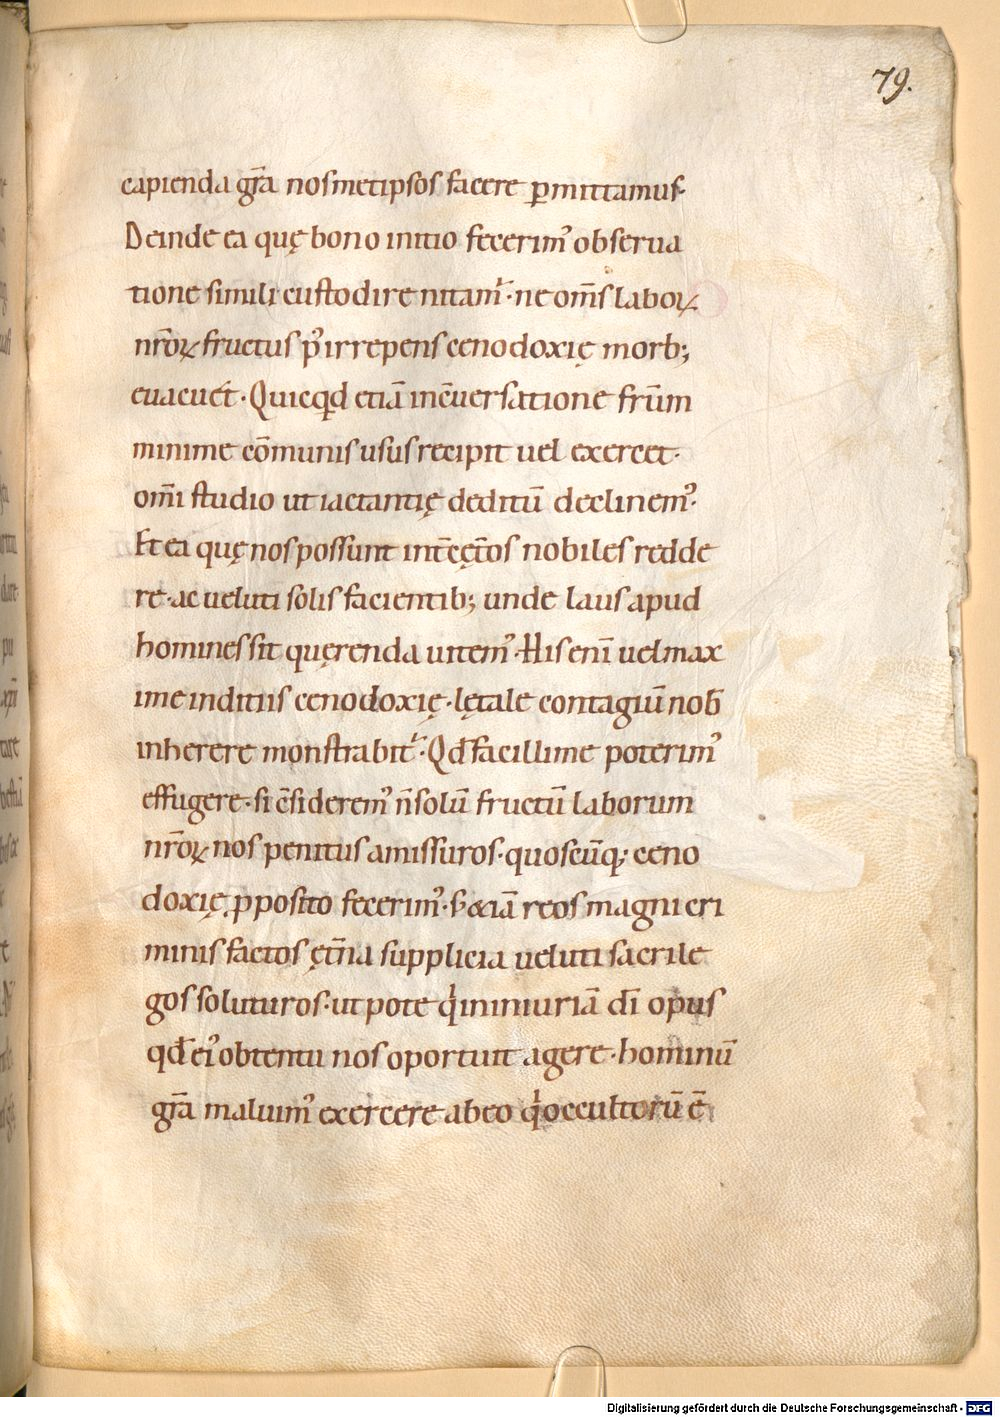 79.
capienda gr̄a nosmetipsos facere ꝑmittamus.
Deinde ea quę bono initio fecerimꝰ obserua
tione simili custodire nitamͬ · ne om̄s laboꝝ
nr̄oꝝ fructus p̾ irrepens cenodoxię morb;
euacuet · Quicq̄d etiā in c̄uersatione frūm
minime cōmunis usus recipit uel exercet ·
om̄i studio ut iactantię deditū declinemꝰ ·
Et ea quę nos possunt int̄ cęt̄os nobiles redde
re · ac ueluti solis facientib; unde laus apud
homines sit quęrenda uitemꝰ · His eni uel max
ime inditiis cenodoxię · lętale contagiū nob̄
inherere monstrabitͬ · Qd̄ facillime poterimꝰ
effugere · si c̄sideremꝰ n̄ solū fructū laborum
nr̄oꝝ nos penitus amissuros · quoscūq; ceno
doxię ꝓposito fecerimꝰ · s; & iā reos magni cri
minis factos ęt̄na supplicia ueluti sacrile
gos soluturos · ut pote qͥ in iniuriā dī opus
qd̄ eiꝰ obtentu nos oportuit agere · hominū
gr̄a maluimꝰ exercere ab eo qͥ occultorū ē
Digitalisierung gefördert durch die Deutsche Forschungsgemeinschaft - DFG